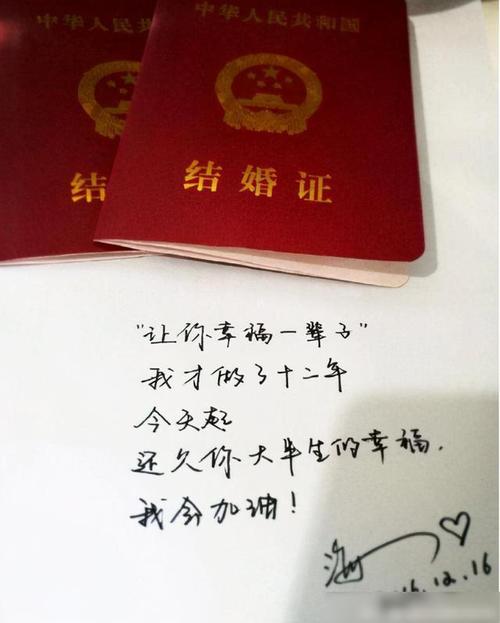 中华人民共
中华人民共和国
结
结婚证
"让你幸福一辈子"
我才做了十二年
今天起
还欠你大半生的幸福.
我会加油!
16.12.16